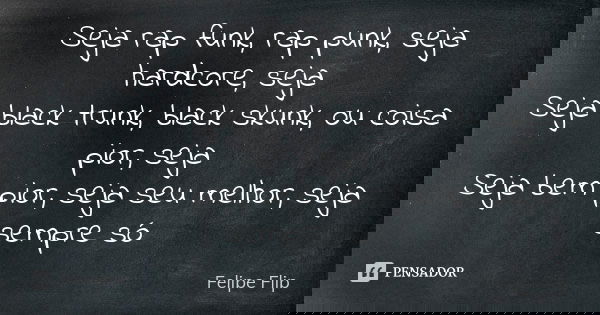 Seja rap funk, rap punk, seja
hardcore, seja
Seja black trunk, black skunk, ou coisa
pior, seja
Seja bem pior, seja seu melhor, seja
sempre só
Felipe Flip
PENSADOR